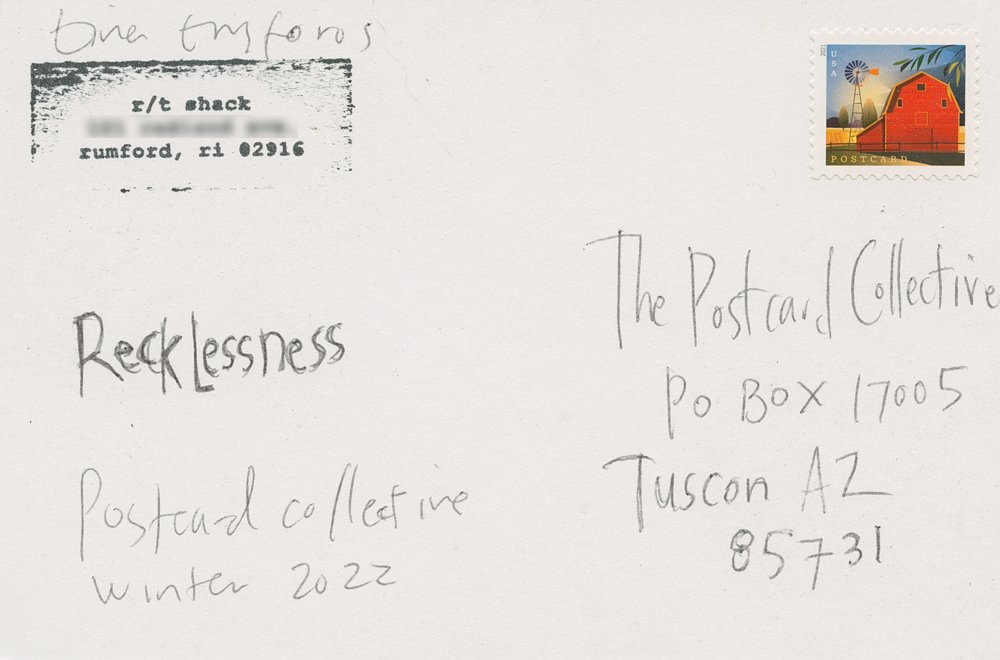 r/t shack
rumford, ri 02916
2021
USA
POSTCARD
The Postcard Collective
PO BOX 17005
Tuscon AZ
85731
RecKLessness
Postcard collective
winter 2022